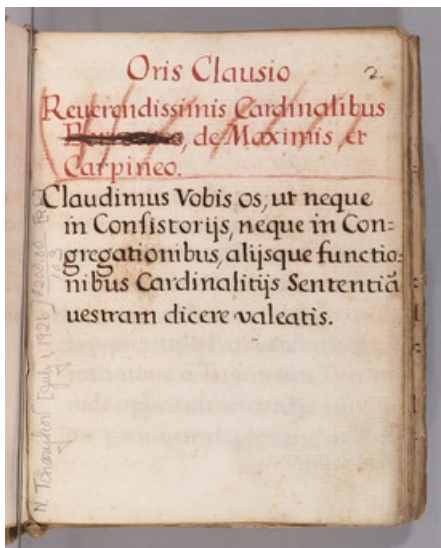 Oris Clausio
2
Reuerendissimis Cardinalibus
de Maximis et
Carpineo.
Claudimus Vobis os, ut neque
in Consistorijs, neque in Con=
gregationibus, alijsque functio=
nibus Cardinalitijs Sententiã
uestram dicere valeatis.
N. Tchanchov [July 1, 1926]